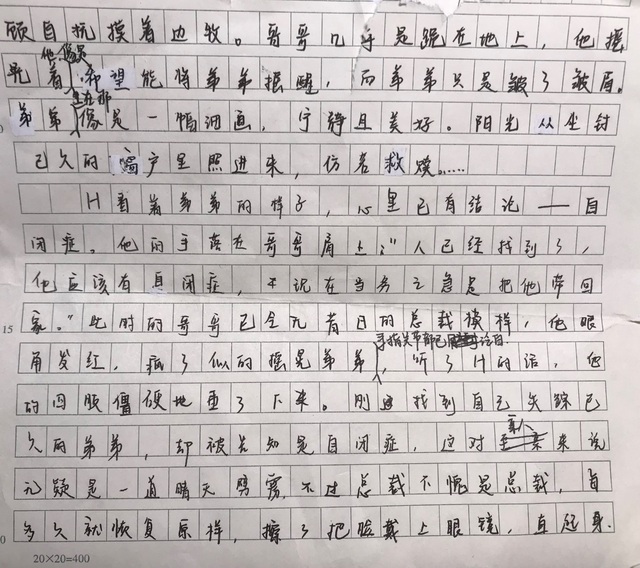 顾自抗摸着边牧。哥哥几乎是跪在地上，他摇
晃着他，像是希望能将弟弟摇醒，而弟弟只是皱了皱眉。
弟弟坐在那像是一幅油画，宁静且美好。阳光从尘封
已久的窗户里照进来，仿若救赎……
H看着弟弟的样子，心里已有结论——自
闭症。他的手落在哥哥肩上："人已经找到了，
他应该有自闭症，不现在当务之急是把他带回
家。"此时的哥哥已全无昔日的总裁模样，他眼
角发红，疯了似的摇晃弟弟，手指关节都已泛白，听了H的话，他
的四肢僵硬地垂了下来。刚找到自己失踪已
久的弟弟，却被告知是自闭症，这对亲人来说
无疑是一道晴天劈雳，不过总裁不愧是总裁，自
多久就恢复原样，擦了把脸戴上眼镜，直起身.
15
20×20=400